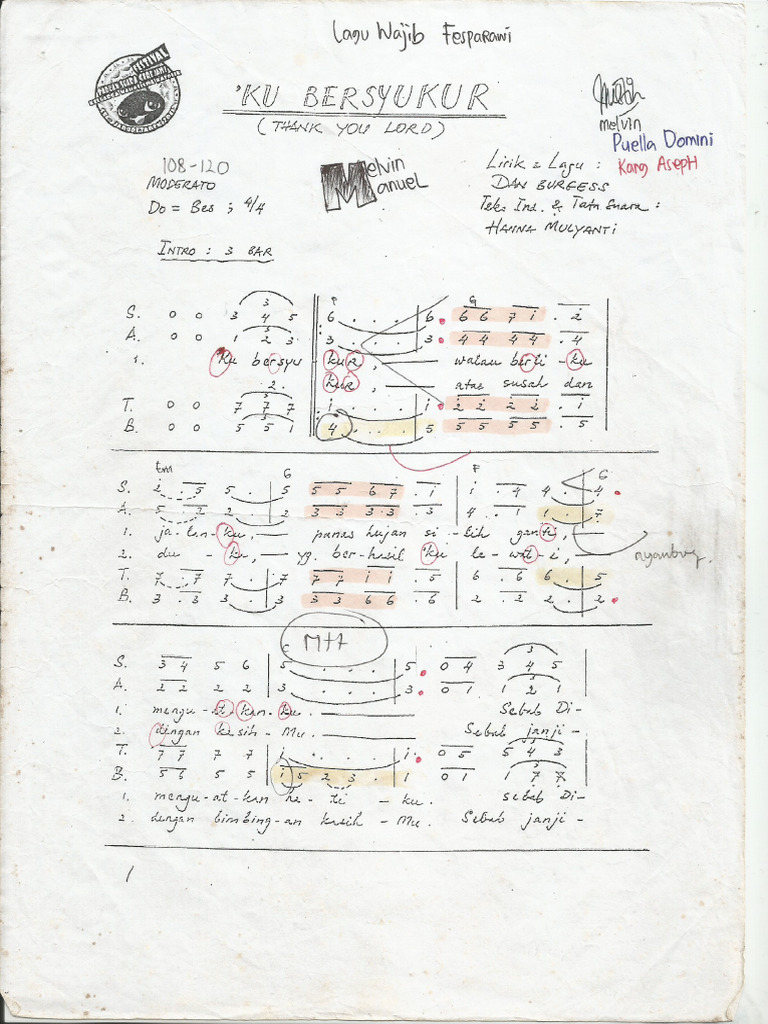 Lagu Wajib Fesparawi
FESTIVAL
'KU BERSYUKUR
(THANK YOU LORD)
Melvin
Puella Domini
Kang Aseph
108-120
MODERATO
Do = Bes ; 4/4
Melvin Manuel
Lirik & Lagu :
DAN BURGESS
Teks Ind. & Tata Suara :
HANNA MULYANTI
INTRO : 3 BAR
3
F G
S. 0 0 3 4 5 6 . . . 6 . 6 6 7 i . 2
3
A. 0 0 1 2 3 3 . . . 3 . 4 4 4 4 . 4
1. Ku bersyu - kur, — walau berli - ku
2. kur, — atas susah dan
3
T. 0 0 7 7 7 i . . . i . 2 2 2 2 . i
3
B. 0 0 5 5 1 4 . . . 5 5 5 5 5 . 5
Em G F G
S. 2 . 5 5 . 5 5 5 6 7 . i i . 4 4 . 4
A. 5 . 2 2 . 2 3 3 3 3 . 3 4 . 4 1 . 7
1. ja-lan-ku, — panas hujan si-lih ganti, —
2. du - ku, — yg. ber-hasil 'ku le-wat-i, —
nyambung.
T. 7 . 7 7 . 7 7 7 i i . 5 6 . 6 6 . 5
B. 3 . 3 3 . 3 3 3 6 6 . 6 2 . 2 2 . 2
C
S. 3 4 5 6 5 . . . 5 . 0 4 3 4 5
3
A. 2 2 2 2 3 . . . 3 . 0 1 1 2 1
1. mengu-at-kan-ku. — Sebab Di-
2. dengan kasih-Mu. — Sebab janji-
T. 7 7 7 7 i . . . i . 0 5 5 4 3
B. 5 6 5 5 i 5 2 3 . 1 0 1 1 7 7
1. mengu-at-kan ha-ti - ku. sebab Di-
2. dengan bimbing-an kasih-Mu. Sebab janji-
1